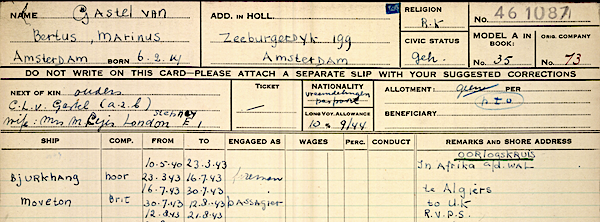 NAME Gastel van
Bertus, Marinus
Amsterdam BORN 6.2.14
ADD. IN HOLL.
Zeeburgerdyk 199
Amsterdam
RELIGION
R.K
CIVIC STATUS
geh.
No. 461087
MODEL A IN BOOK: ORIG. COMPANY
No. 35 No. 73
DO NOT WRITE ON THIS CARD—PLEASE ATTACH A SEPARATE SLIP WITH YOUR SUGGESTED CORRECTIONS
NEXT OF KIN ouders
C.L.V. Gastel (a.z.b)
wife: Mrs M. London E1
TICKET
NATIONALITY
vreemdelingen
paspoort
LONG VOY. ALLOWANCE
10 9/44
ALLOTMENT: geen PER
p.t.o
BENEFICIARY
SHIP COMP. FROM TO ENGAGED AS WAGES PERC. CONDUCT REMARKS AND SHORE ADDRESS
OORLOGSKRUIS
10.5.40 23.3.43 In Afrika a/d. WAL
Bjurkhang noor 23.3.43 16.7.43
16.7.43 30.7.43 te Algiers
Moveton Brit 30.7.43 12.8.43 passagier to U.K
12.8.43 21.8.43 R.V.P.S.